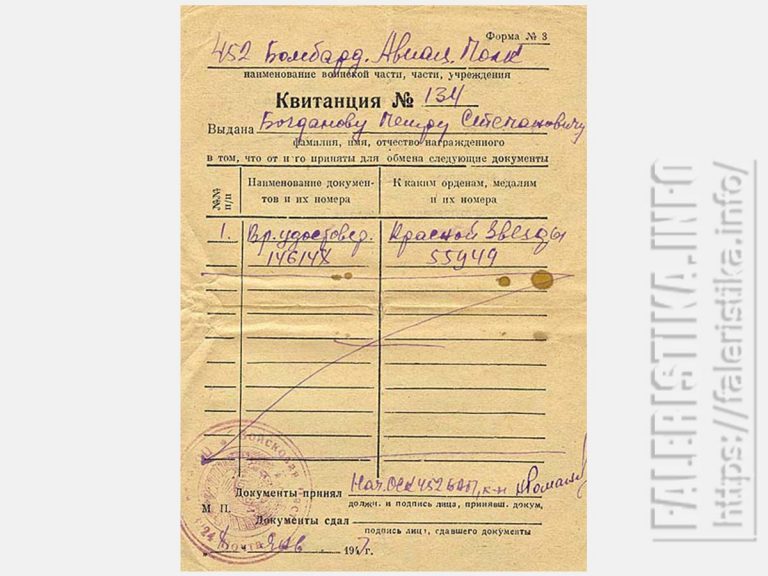 Форма № 3
452 Бомбард. Авиац. Полк
наименование воинской части, части, учреждения
Квитанция № 134
Выдана Богданову Петру Степановичу
фамилия, имя, отчество награжденного
в том, что от него приняты для обмена следующие документы
№№ п/п
Наименование докумен-
тов и их номера
К каким орденам, медалям
и их номера
1. Вр. удостовер. Красной Звезды
146148 55949
Войсковая
почта
Документы принял Нач. 452 БАП, к-н Романов
должн. и подпись лица, принявш. докум,
М П.
Документы сдал
подпись лиц, сдавшего документы
194 г.
FALERISTIKA.INFO
https://faleristika.info/